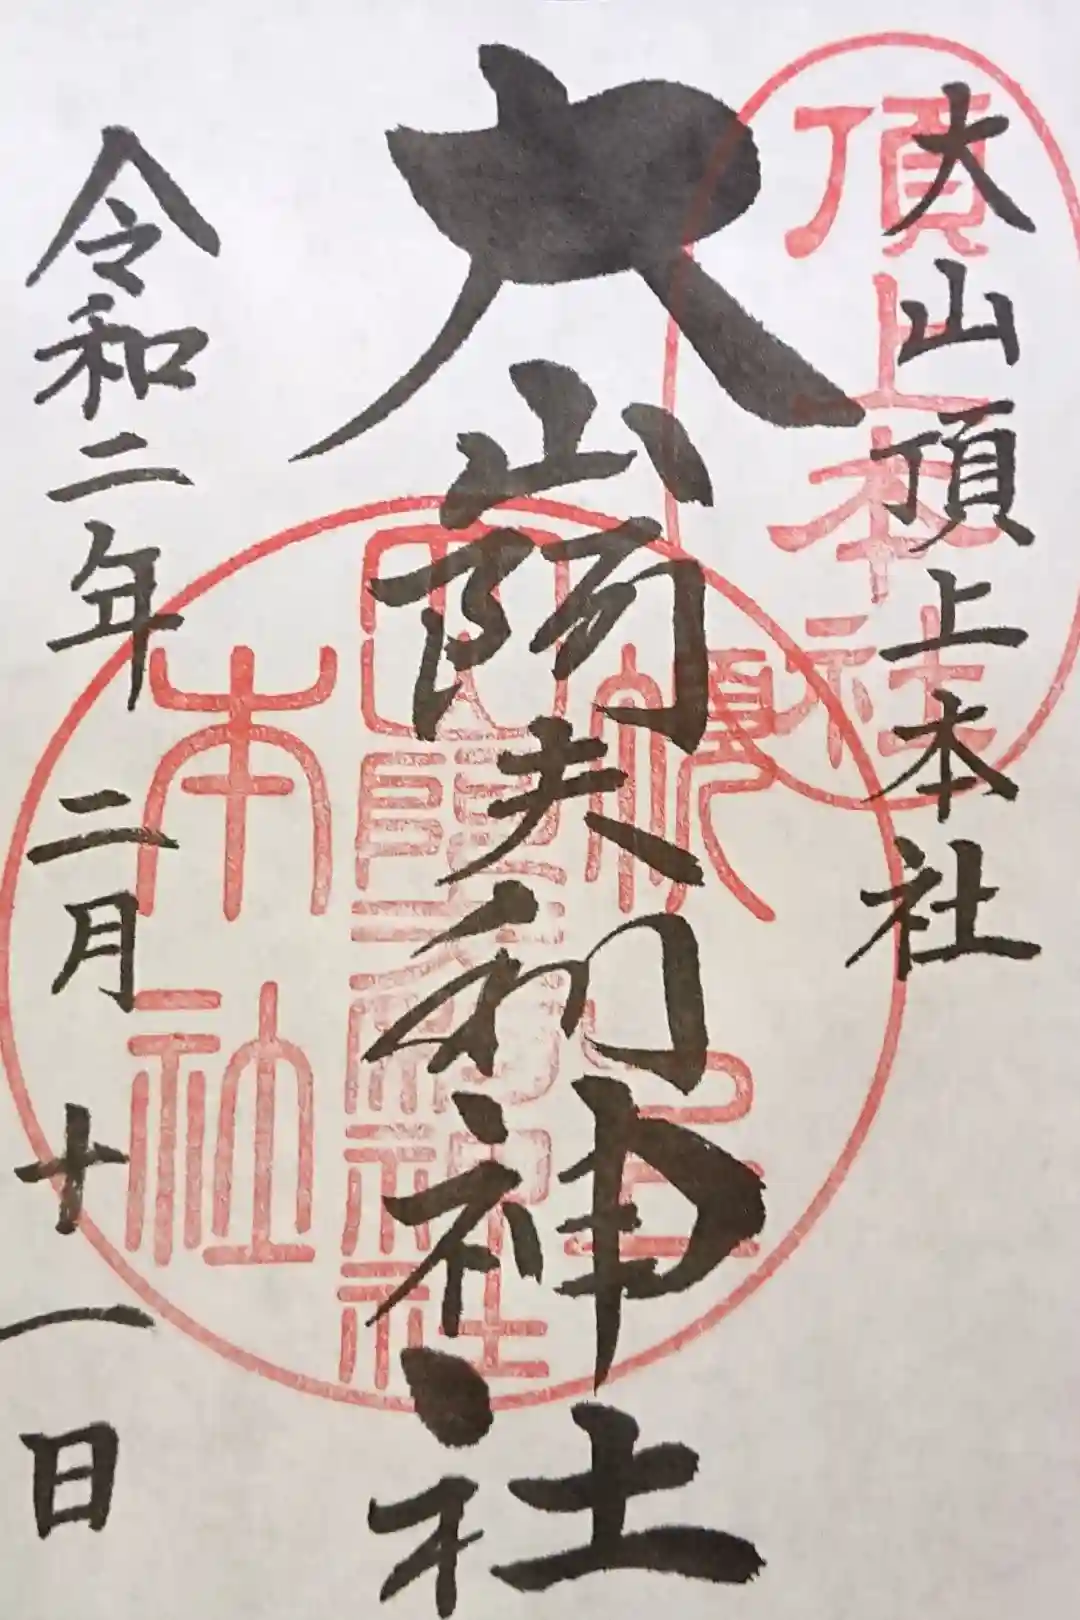 大山頂上本社
頂上本社
大山阿夫利神社
本社
令和二年二月十一日